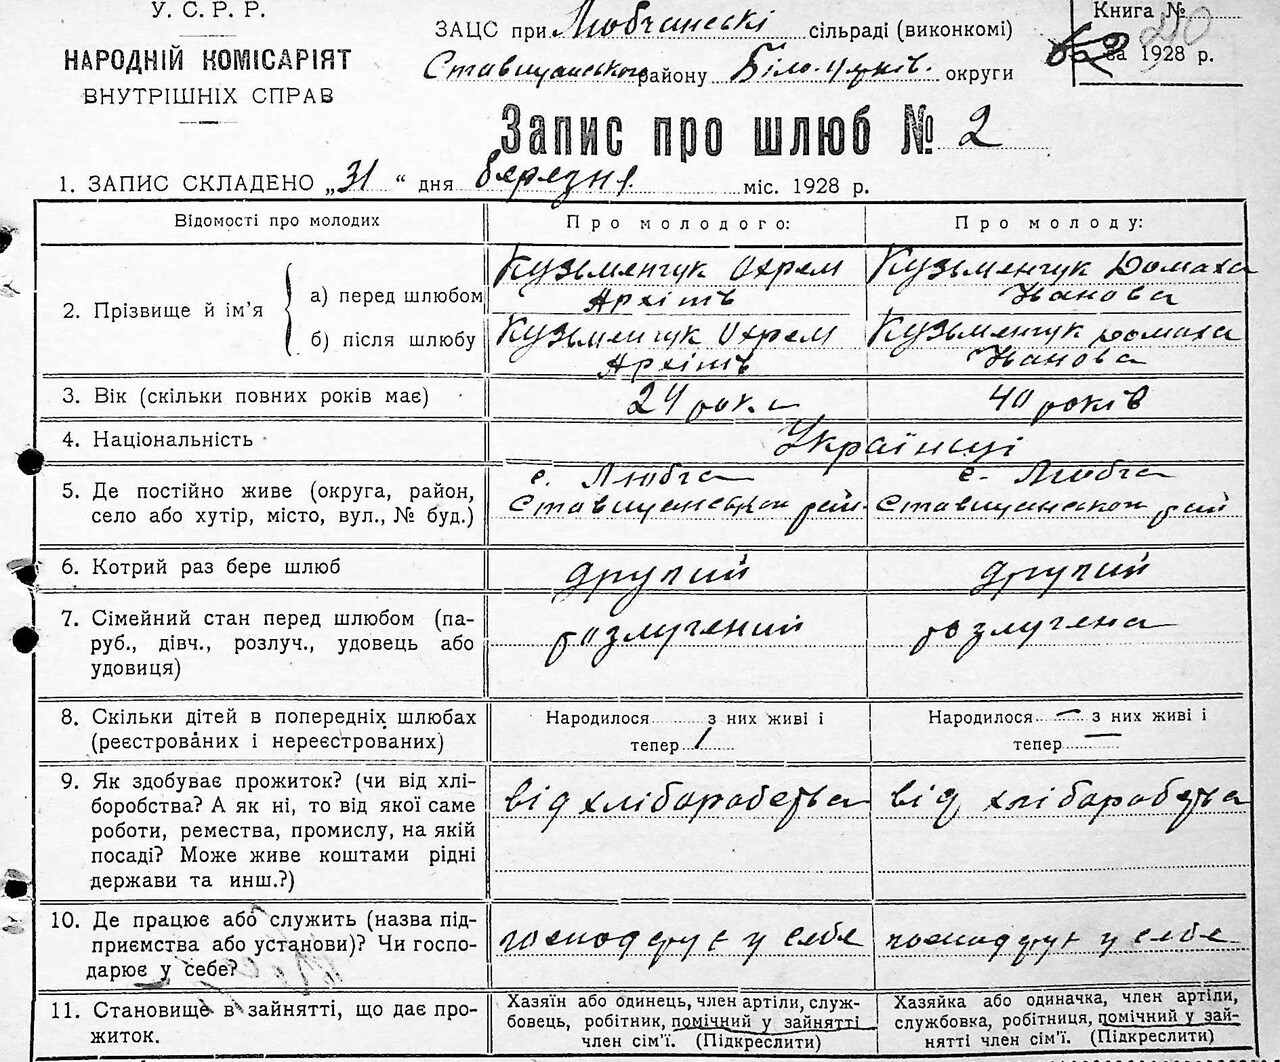 У. С. Р. Р.
НАРОДНІЙ КОМІСАРІЯТ
ВНУТРІШНІХ СПРАВ
ЗАЦС при Любчанскі сільраді (виконкомі)
Ставищанського району Біло-церків. округи
Книга №
за 1928 р.
Запис про шлюб № 2
1. ЗАПИС СКЛАДЕНО „31 “ дня березня міс. 1928 р.
Відомості про молодих
Про молодого:
Про молоду:
2. Прізвище й ім'я
а) перед шлюбом
Кузьменчук Охрем
Архіпів
Кузьменчук Домаха
Іванова
б) після шлюбу
Кузьменчук Охрем
Архіпів
Кузьменчук Домаха
Іванова
3. Вік (скільки повних років має)
24 роки
40 років
4. Національність
Українці
5. Де постійно живе (округа, район,
село або хутір, місто, вул., № буд.)
с. Любча
Ставищанськой рай.
с. Любча
Ставищанской рай
6. Котрий раз бере шлюб
другий
другий
7. Сімейний стан перед шлюбом (па-
руб., дівч., розлуч., удовець або
удовиця)
розлучений
розлучена
8. Скільки дітей в попередніх шлюбах
(реєстрованих і нереєстрованих)
Народилося з них живі і
тепер 1
Народилося — з них живі і
тепер —
9. Як здобуває прожиток? (чи від хлі-
боробства? А як ні, то від якої саме
роботи, ремества, промислу, на якій
посаді? Може живе коштами рідні
держави та инш.?)
від хліборобства
від хліборобства
10. Де працює або служить (назва під-
приємства або установи)? Чи госпо-
дарює у себе?
господарує у себе
господарує у себе
11. Становище в зайнятті, що дає про-
житок.
Хазяїн або одинець, член артіли, служ-
бовець, робітник, помічний у зайнятті
член сім'ї. (Підкреслити)
Хазяйка або одиначка, член артіли,
службовка, робітниця, помічний у зай-
нятті член сім'ї. (Підкреслити)